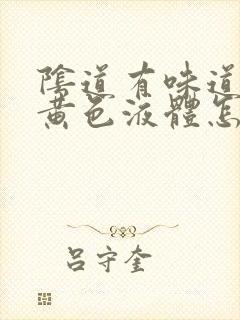 陰道有味道
黄色液體怎
吕守奎